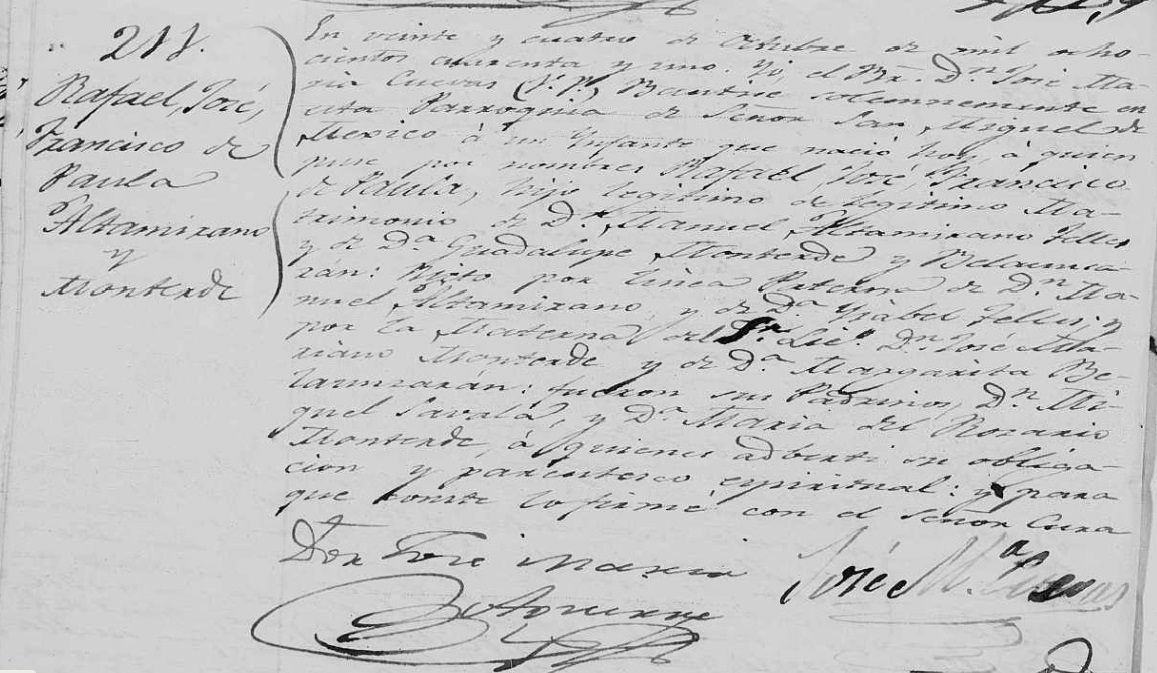 211.
Rafael, José,
Francisco de
Paula
Altamirano
y
Monterde
En veinte y cuatro de Octubre de mil ocho-
cientos cuarenta y uno. Yo, el Br. Dn. José Ma-
ria Cuevas (V. P.) Bautisé solemnemente en
esta Parroquia de Señor San Miguel de
Mexico á un Ynfante que nació hoy, á quien
puse por nombres Rafael, José, Francisco
de Paula, hijo legitimo de legitimo Ma-
trimonio de Dn. Manuel Altamirano Telles
y de Da. Guadalupe Monterde y Belaunza-
rán: Nieto por linea Paterna de Dn. Ma-
nuel Altamirano, y de Da. Ysabel Telles; y
por la Materna del Sr. Lic. Dn. José Ma-
riano Monterde y de Da. Margarita Be-
launzarán: fueron sus Padrinos, Dn. Mi-
guel Savala, y Da. Maria del Rosario
Monterde, á quienes adverti su obliga-
cion y parentesco espiritual: y para
que conste lo firmé con el Señor Cura
José Maria José Ma. Cuevas